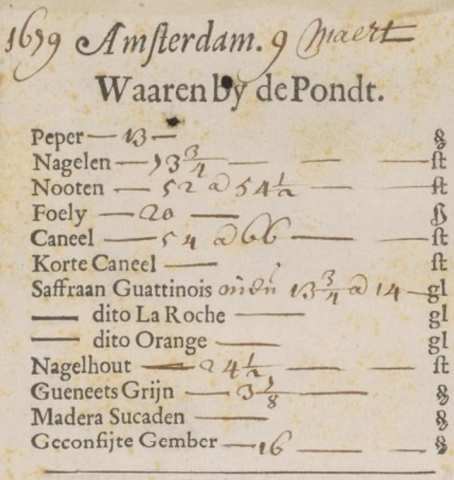 1679 Amsterdam. 9 Maert
Waaren by de Pondt.
Peper — 13 —
Nagelen — 73 3/4 — st
Nooten — 52 @ 54 1/2 — st
Foely — 20 — ß
Caneel — 54 @ 66 — st
Korte Caneel — st
Saffraan Guattinois 13 3/4 @ 14 — gl
— dito La Roche — gl
— dito Orange — gl
Nagelhout — 24 1/2 — st
Gueneets Grijn —
Madera Sucaden —
Geconfijte Gember — 16 —